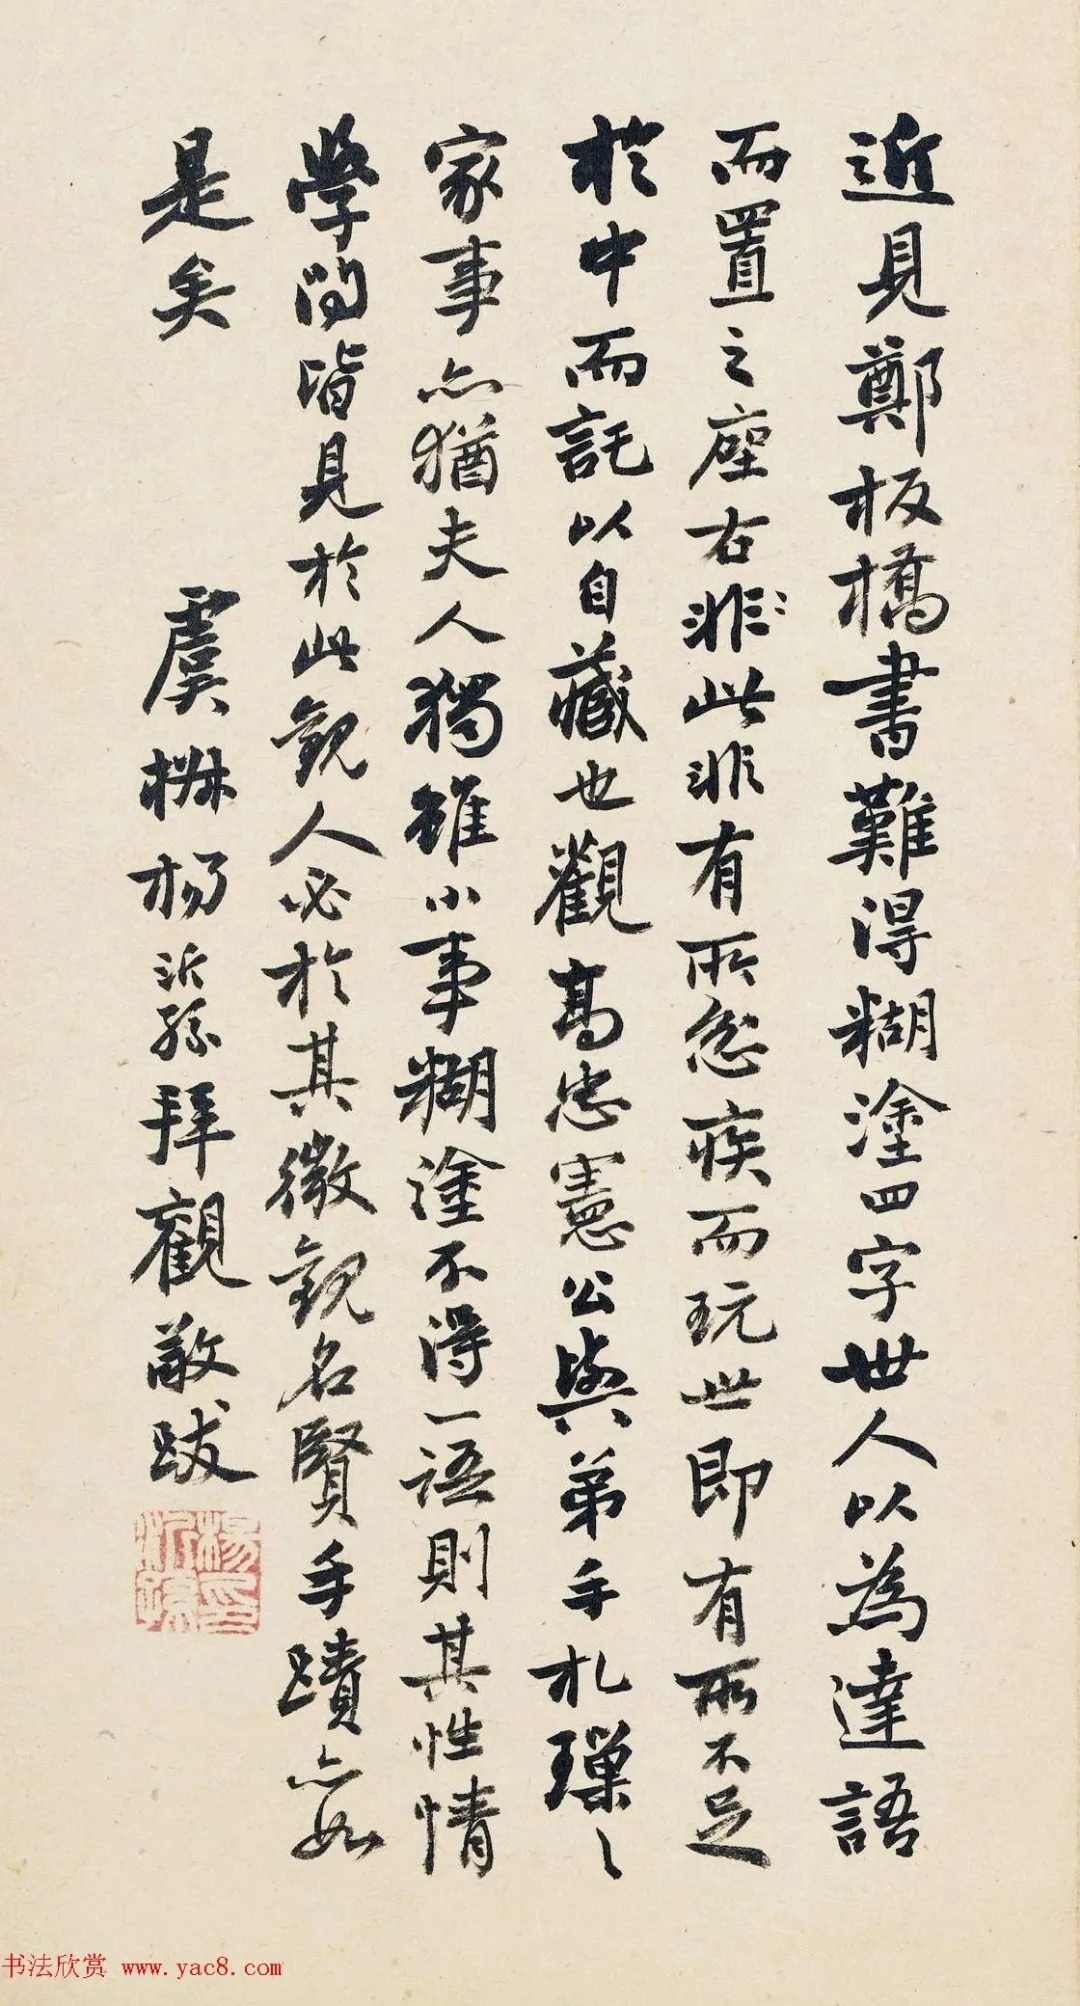 近見鄭板橋書難得糊塗四字世人以為達語
而置之座右非此非有所忿疾而玩世即有所不足
於中而託以自藏也觀高忠憲公與弟手札璅〻
家事亦猶夫人獨雖小事糊塗不得一語則其性情
學問皆見於此觀人必於其微觀名賢手蹟亦如
是矣
虞楙楊沂孫拜觀敬跋
楊沂孫印
书法欣赏 www.yac8.com